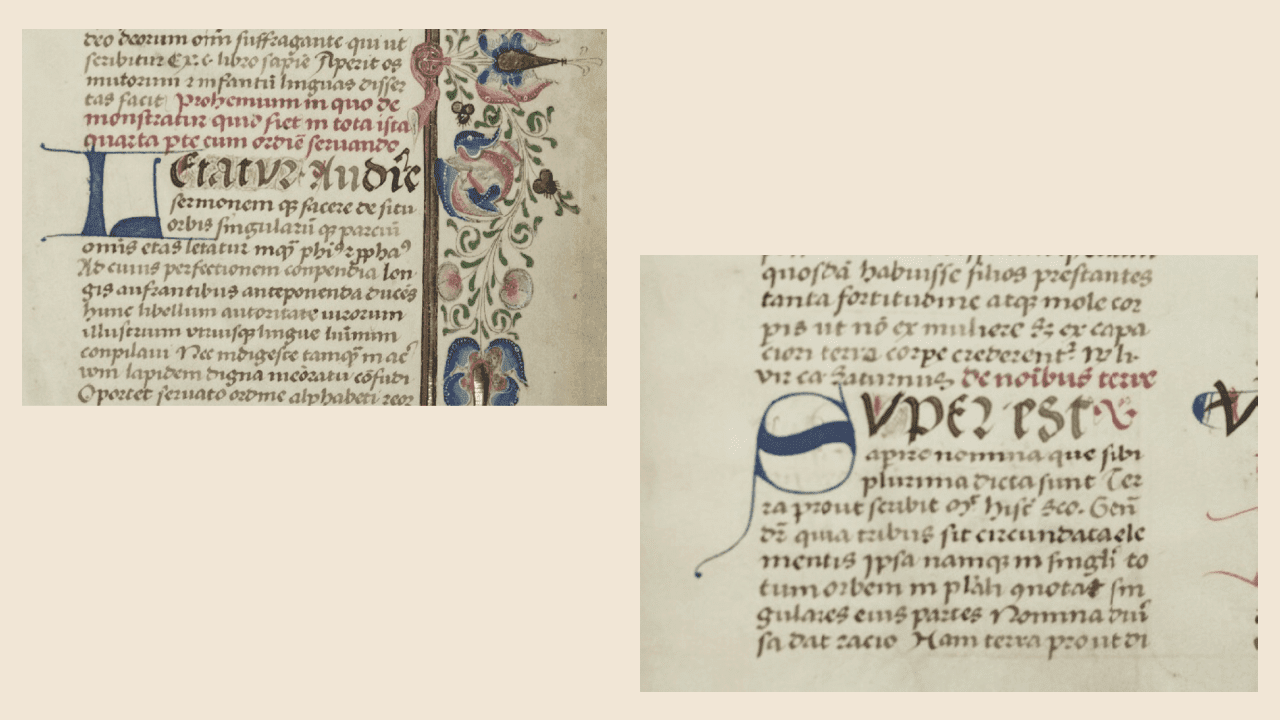 deo deorum om̃ suffragante qui ut
scribitur Ex. c libro sapĩe Aperit os
mutorum ⁊ infantiũ linguas disser
tas facit Prohemium in quo de
monstratur quid fiet in tota ista
quarta pte cum ordiẽ seruando
LEtatur Audiẽ
sermonem qꝫ facere de situ
orbis singulariũ qꝫ parciũ
omĩs etas letatur
Ad cuius perfectionem conpendia lon
gis anfrantibus anteponenda ducẽs
hunc libellum autoritate uirorum
illustrium utriusqꝫ lingue
conpilaui Nec indigeste tamqꝫ in ac
lapidem digna meõratu cõfudi
Oportet seruato ordine alphabeti reor
quosdã habuisse filios prestantes
tanta fortitudine atqꝫ mole cor
pis ut nõ ex muliere Sꝫ ex capa
ciori terra corpe crederent᷑
vir ca Saturnius de noĩbus terre
SVPER est
apire nomina que sibi
plurima dicta sunt Ter
ra prout scribit hisť Sco. Geñ
dr̃ quia tribus sit circundata ele
mentis ipsa namqꝫ in singlĩ to
tum orbem in plãli quotat sin
gulares eius partes Nomina diui
sa dat racio Nam terra prout di